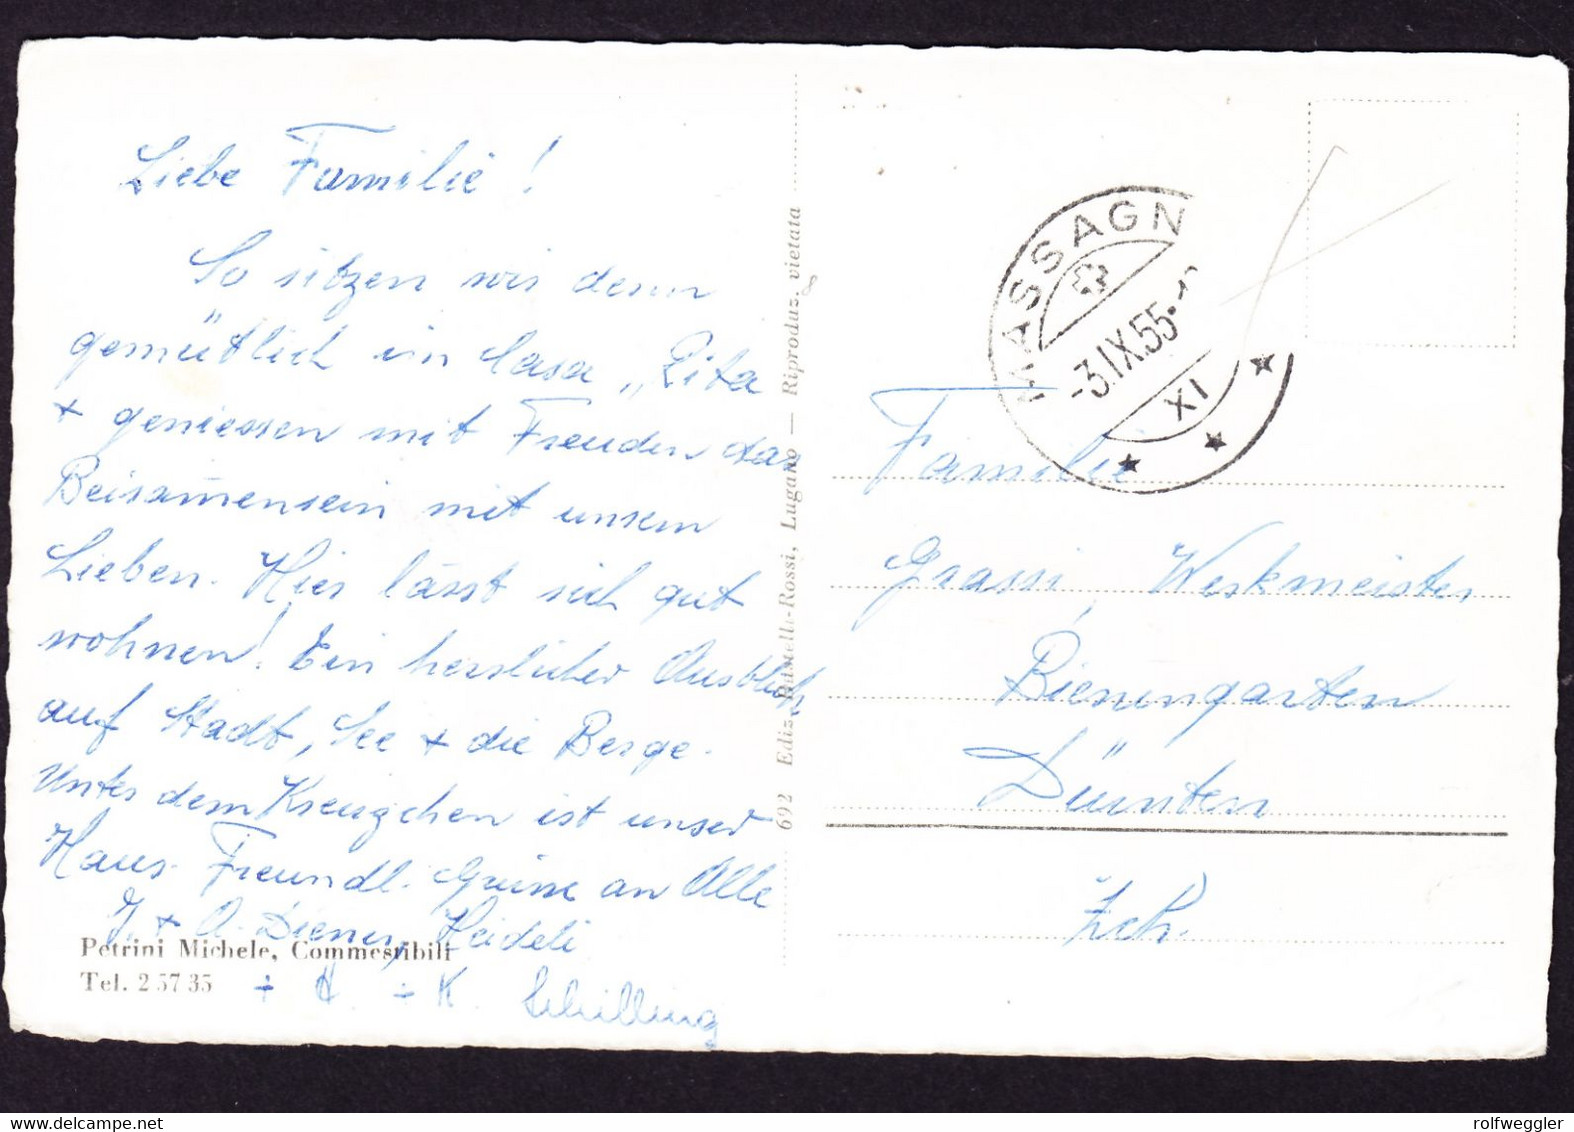 Liebe Familie!
So sitzen wir denn
gemütlich im Casa „Rita
+ geniessen mit Freuden das
Beisam̄ensein mit unsern
Lieben. Hier lässt sich gut
wohnen! Ein herrlicher Ausblick
auf Stadt, See + die Berge.
Unter dem Kreuzchen ist unser
Haus. Freundl. Grüsse an Alle
J. + A. Diener, Heideli
+ H. + K. Schilling
Petrini Michele, Commestibili
Tel. 2 57 35
692 Ediz. Rastelli-Rossi, Lugano — Riproduz. vietata
MASSAGN
-3.IX.55
XI
Familie
Grassi, Werkmeister
Bienengarten
Dürnten
Zch.
rolfweggler